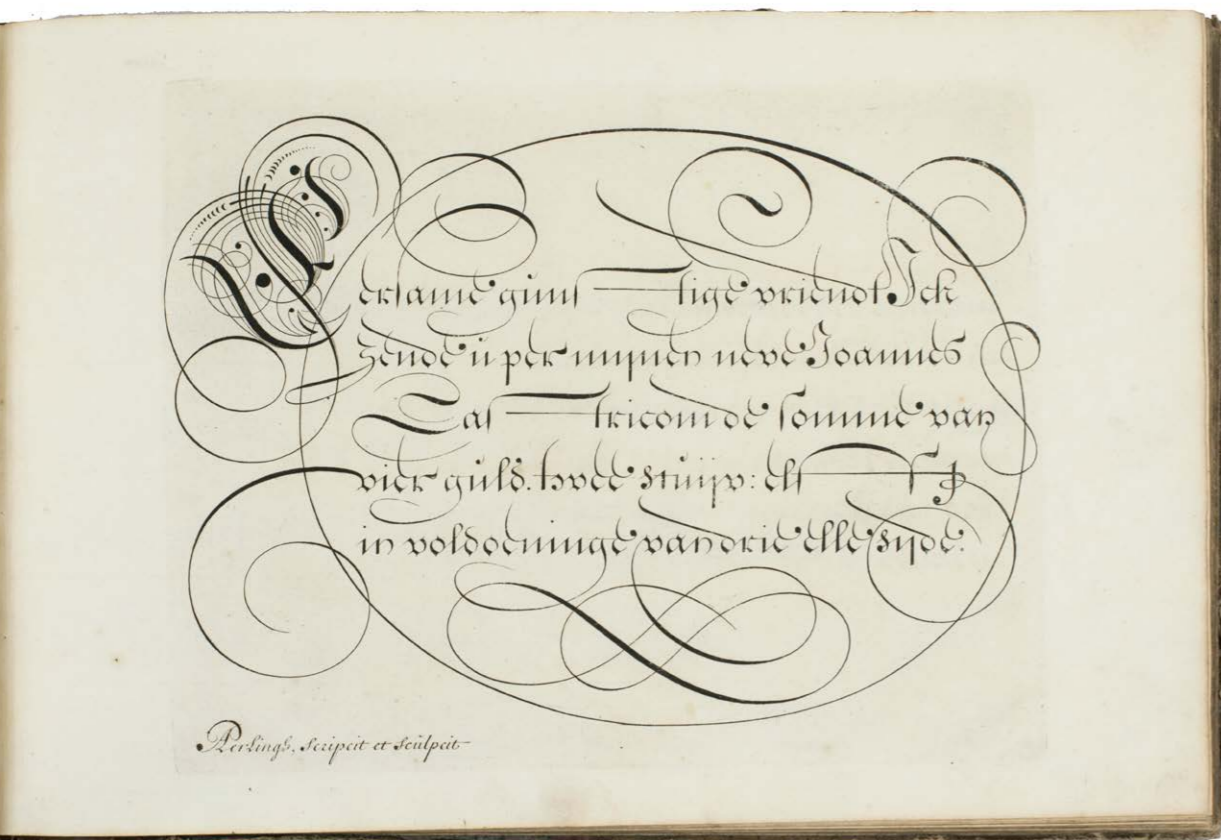 Eersame gunstige vriendt Ick
Zende u per mijnen neve Joannes
Castricom de somme van
vier guld. twee stuijv: els
in voldoeninge van drie elle Zijde.
Perlingh. scripcit et sculpcit